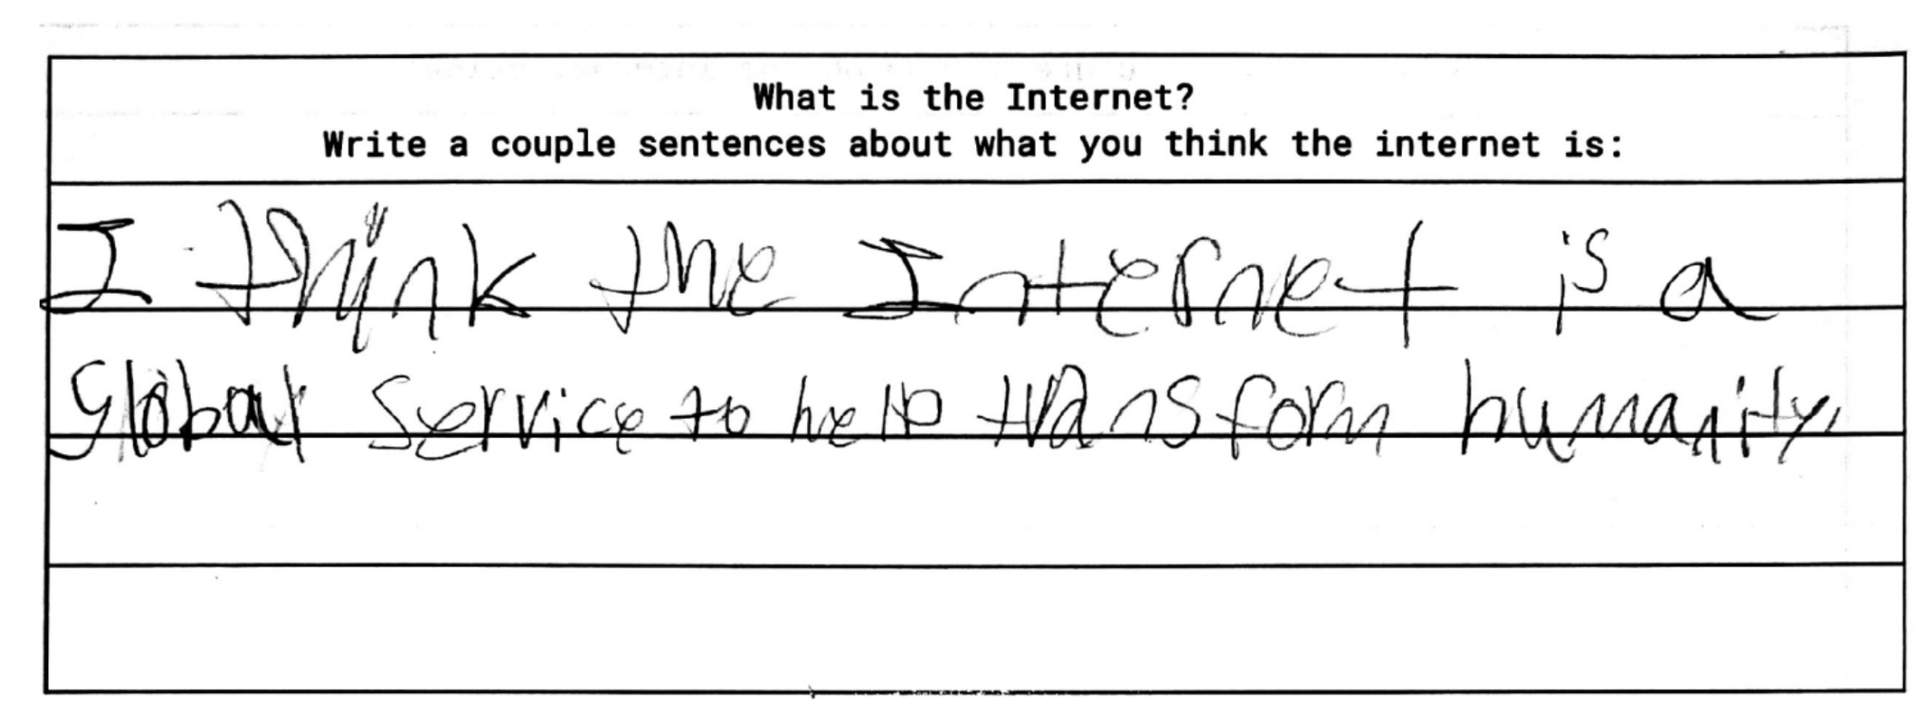 What is the Internet?
Write a couple sentences about what you think the internet is:
I think the Internet is a
global service to help transform humanity.